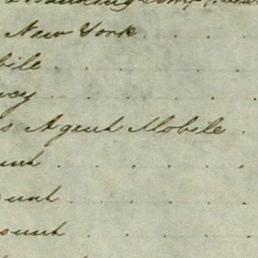 & Banking Comp.
New York
bile
ncy
s Agent Mobile
unt
ount
ount